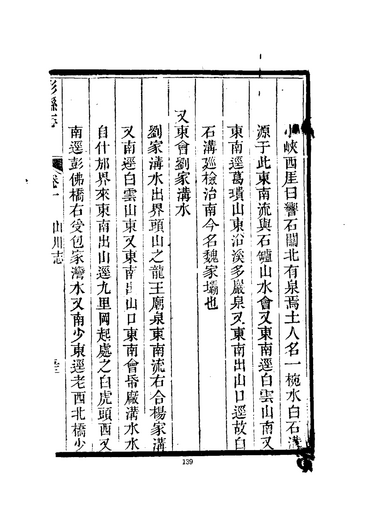 小峽西崖曰響石關北有泉焉土人名一椀水白石溝
源于此東南流與石爐山水會又東南逕白雲山南又
東南逕葛璝山東沿溪多巖泉又東南出山口逕故白
石溝巡檢治南今名魏家壩也
又東會劉家溝水
劉家溝水出界頭山之龍王廟泉東南流右合楊家溝
又南逕白雲山東又東南出山口東南會厰溝水水
自什邡界來東南出山逕九里岡起處之白虎頭西又
南逕彭佛橋右受包家灣水又南少東逕老西北橋少
彭縣志
卷一
山川志
139